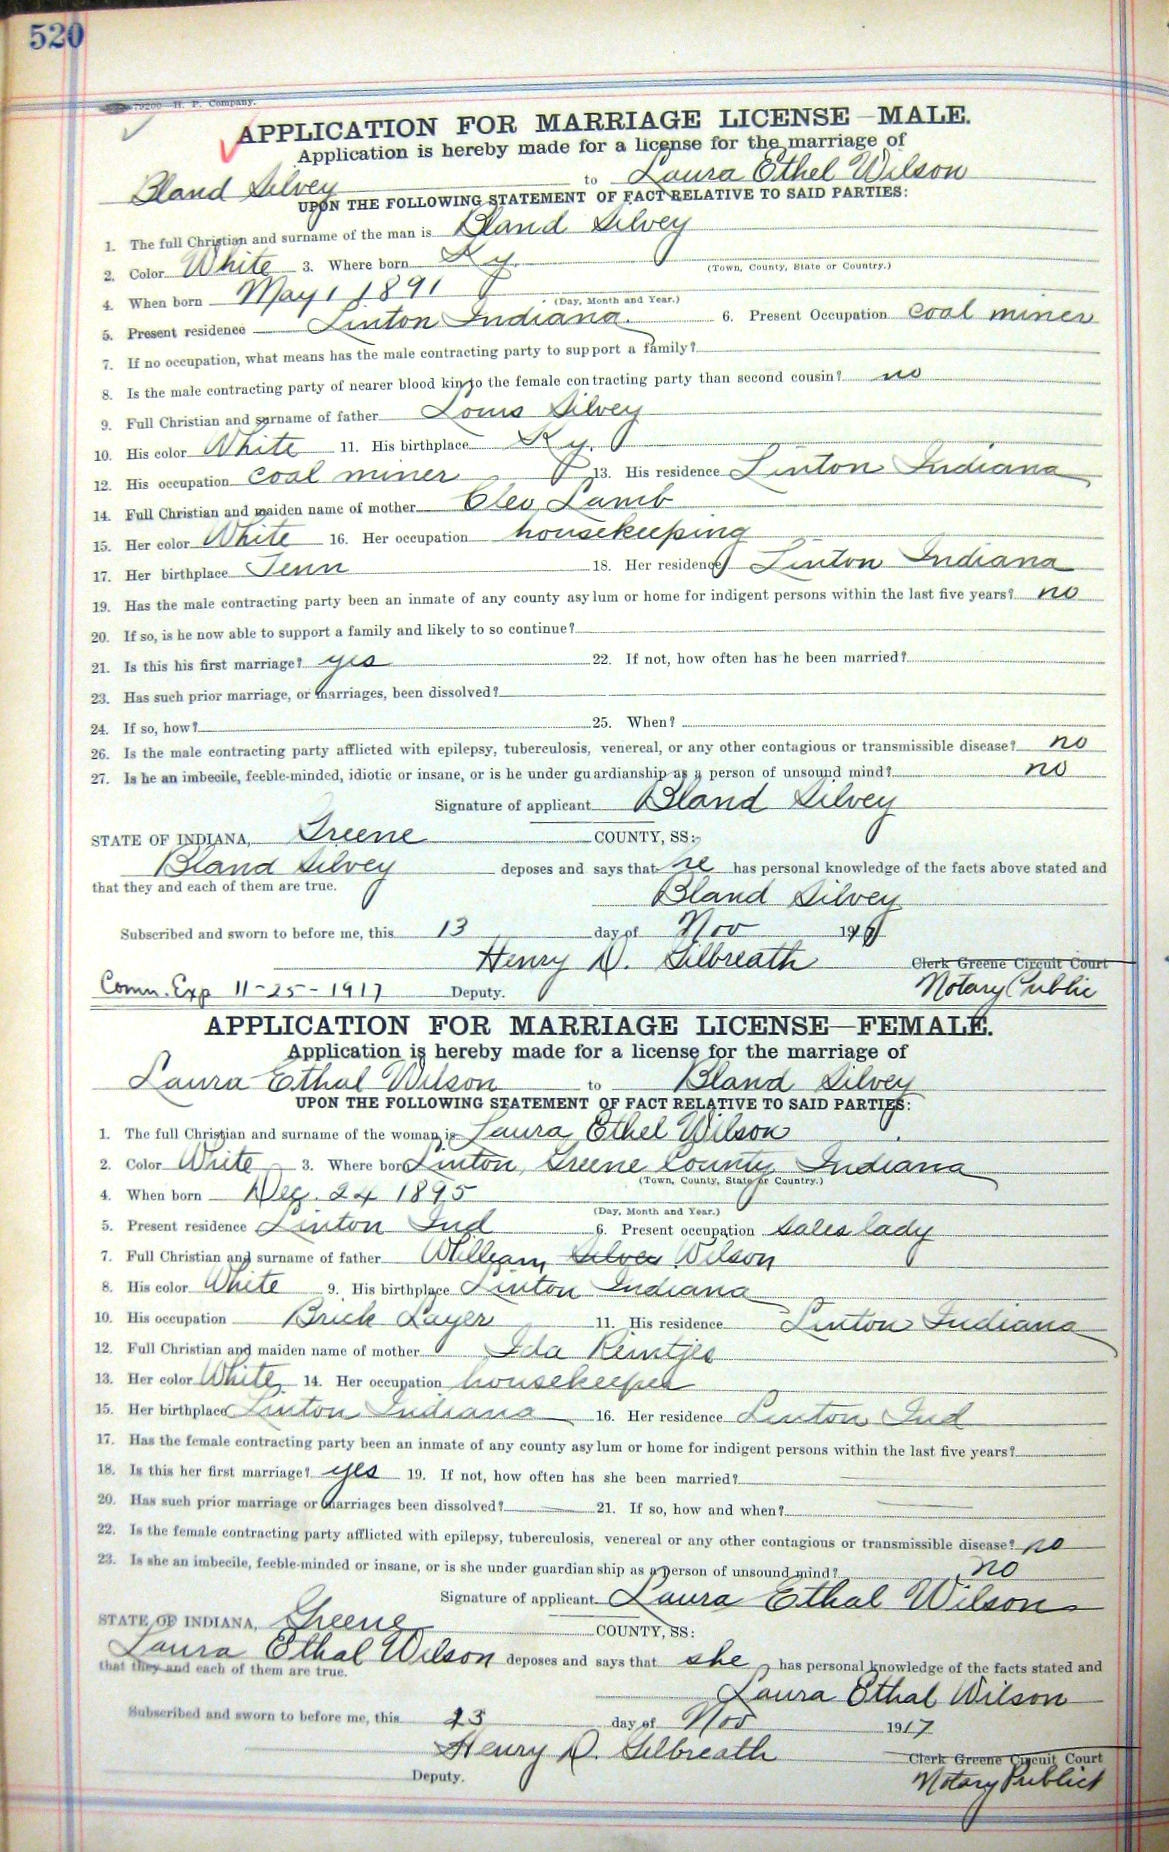 520
79200—H. P. Company.
APPLICATION FOR MARRIAGE LICENSE—MALE.
Application is hereby made for a license for the marriage of
Bland Silvey to Laura Ethel Wilson
UPON THE FOLLOWING STATEMENT OF FACT RELATIVE TO SAID PARTIES:
1. The full Christian and surname of the man is Bland Silvey
2. Color White 3. Where born Ky.
(Town, County, State or Country.)
4. When born May 1 1891
(Day, Month and Year.)
5. Present residence Linton Indiana. 6. Present Occupation coal miner
7. If no occupation, what means has the male contracting party to support a family?
8. Is the male contracting party of nearer blood kin to the female contracting party than second cousin? no
9. Full Christian and surname of father Louis Silvey
10. His color White 11. His birthplace Ky.
12. His occupation coal miner 13. His residence Linton Indiana
14. Full Christian and maiden name of mother Cleo Lamb
15. Her color White 16. Her occupation housekeeping
17. Her birthplace Tenn 18. Her residence Linton Indiana
19. Has the male contracting party been an inmate of any county asylum or home for indigent persons within the last five years? no
20. If so, is he now able to support a family and likely to so continue?
21. Is this his first marriage? yes 22. If not, how often has he been married?
23. Has such prior marriage, or marriages, been dissolved?
24. If so, how? 25. When?
26. Is the male contracting party afflicted with epilepsy, tuberculosis, venereal, or any other contagious or transmissible disease? no
27. Is he an imbecile, feeble-minded, idiotic or insane, or is he under guardianship as a person of unsound mind? no
Signature of applicant Bland Silvey
STATE OF INDIANA, Greene COUNTY, SS:
Bland Silvey deposes and says that he has personal knowledge of the facts above stated and
that they and each of them are true.
Bland Silvey
Subscribed and sworn to before me, this 13 day of Nov 1917
Henry D. Gilbreath Clerk Greene Circuit Court
Comn. Exp 11-25-1917 Deputy. Notary Public
APPLICATION FOR MARRIAGE LICENSE—FEMALE.
Application is hereby made for a license for the marriage of
Laura Ethal Wilson to Bland Silvey
UPON THE FOLLOWING STATEMENT OF FACT RELATIVE TO SAID PARTIES:
1. The full Christian and surname of the woman is Laura Ethel Wilson
2. Color White 3. Where born Linton, Greene County, Indiana
(Town, County, State or Country.)
4. When born Dec. 24 1895
(Day, Month and Year.)
5. Present residence Linton Ind 6. Present occupation sales lady
7. Full Christian and surname of father William Silver Wilson
8. His color White 9. His birthplace Linton Indiana
10. His occupation Brick Layer 11. His residence Linton Indiana
12. Full Christian and maiden name of mother Ida Reintjes
13. Her color White 14. Her occupation housekeeper
15. Her birthplace Linton Indiana 16. Her residence Linton Ind
17. Has the female contracting party been an inmate of any county asylum or home for indigent persons within the last five years?
18. Is this her first marriage? yes 19. If not, how often has she been married?
20. Has such prior marriage or marriages been dissolved? 21. If so, how and when?
22. Is the female contracting party afflicted with epilepsy, tuberculosis, venereal or any other contagious or transmissible disease? no
23. Is she an imbecile, feeble-minded or insane, or is she under guardianship as a person of unsound mind? no
Signature of applicant Laura Ethal Wilson
STATE OF INDIANA, Greene COUNTY, SS:
Laura Ethal Wilson deposes and says that she has personal knowledge of the facts stated and
that they and each of them are true.
Laura Ethal Wilson
Subscribed and sworn to before me, this 13 day of Nov 1917
Henry D. Gilbreath Clerk Greene Circuit Court
Deputy. Notary Public